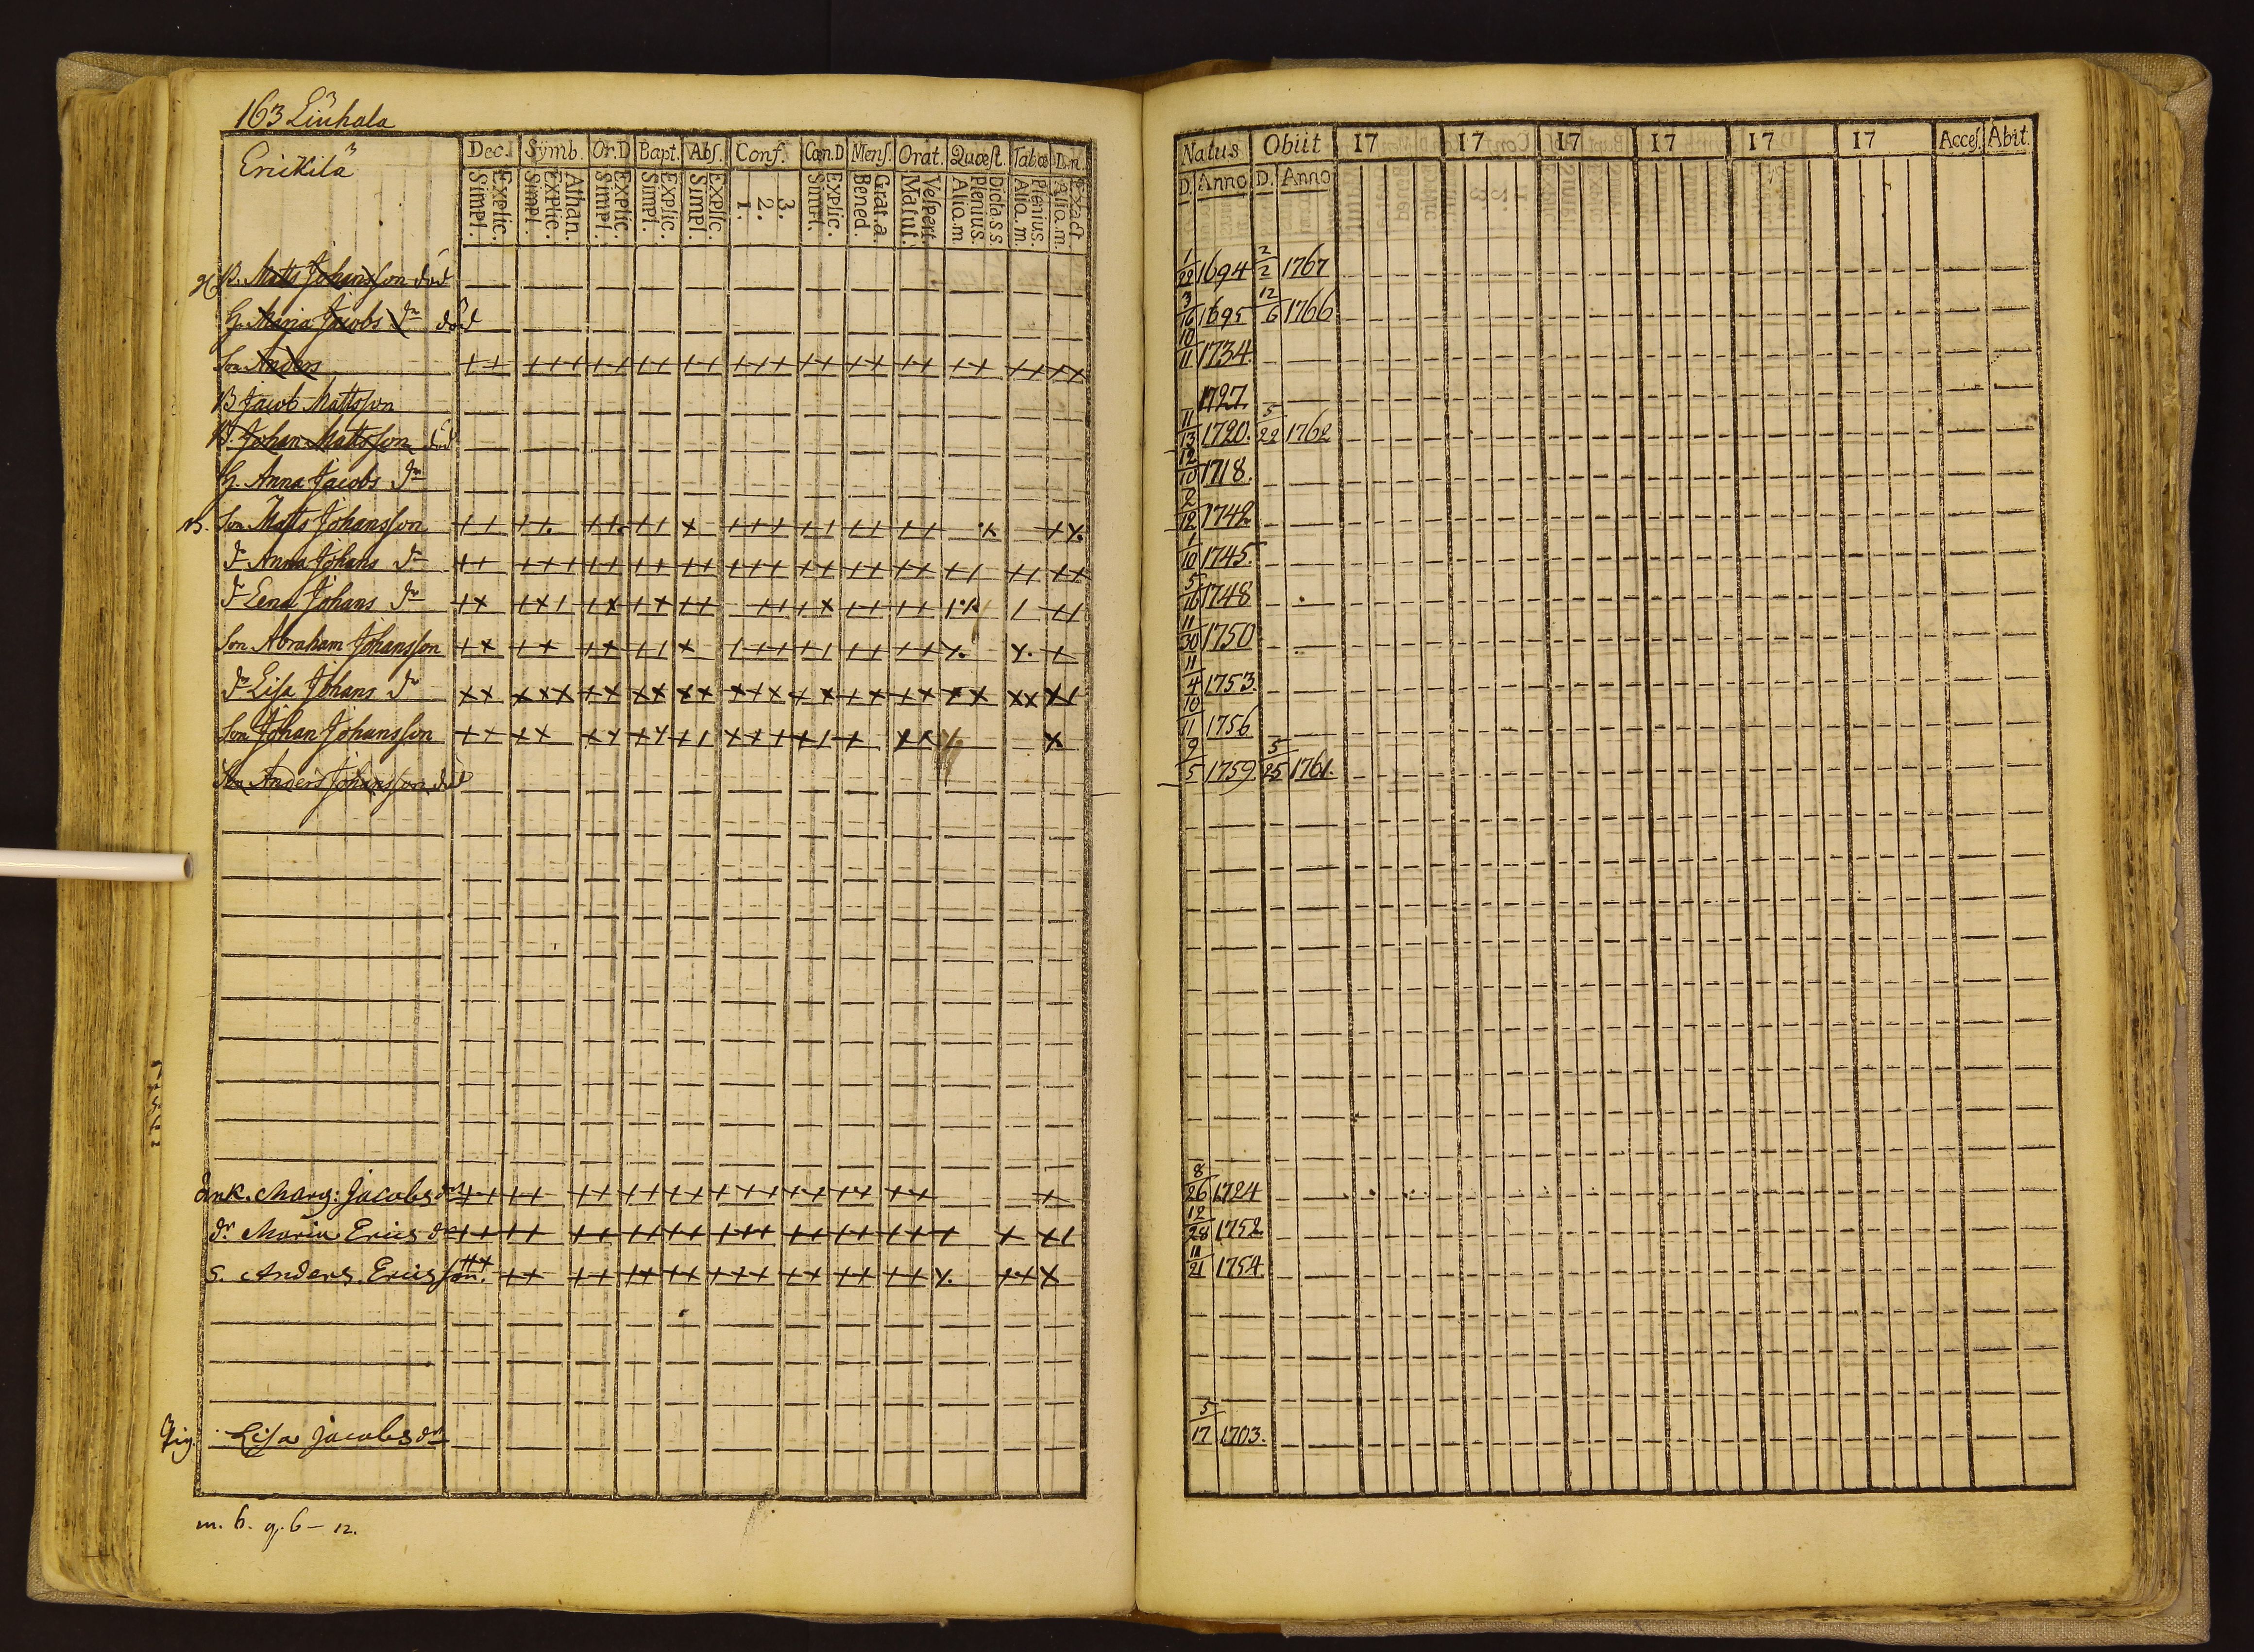 163 Liuhala
Erickilä
Dec. Symb. Or.D Bapt. Abs. Conf. Cœn.D Mens. Orat. Quæst. Tabæ D.n.
Simpl. Explic. Simpl. Explic. Athan. Simpl. Explic. Simpl. Explic. Simpl. Explic. 1. 2. 3. Simpl. Explic. Bened. Grat.a. Matut. Vespert. Alia.m. Plenius. Dicta.s.s. Alia.m. Plenius. Alia.m. Exact.
Natus Obiit 17 17 17 17 17 17 Acces. Abit.
D. Anno D. Anno
B. Matts Johansson död 1/22 1694 2/2 1767
H. Maria Jacobs dr död 3/16 1695 12/6 1766
Son Anders 10/11 1734
B Jacob Mattsson 1727.
B. Johan Mattsson död 11/13 1720. 5/22 1762
H. Anna Jacobs dr 12/10 1718.
B. Son Matts Johansson 2/12 1742
dr Anna Johans dr 1/10 1745.
dr Lena Johans dr 5/16 1748
Son Abraham Johansson 11/30 1750
dr Lisa Johans dr 11/4 1753.
Son Johan Johansson 10/11 1756
Son Anders Johansson död 9/5 1759 5/25 1761.
Änk. Marg: Jacobs dr 8/26 1724
dr Maria Erics dr 12/28 1752
S. Anders Ericsson. 11/21 1754
Lisa Jacobs dr 5/17 1703.
m. 6. q. 6 – 12.